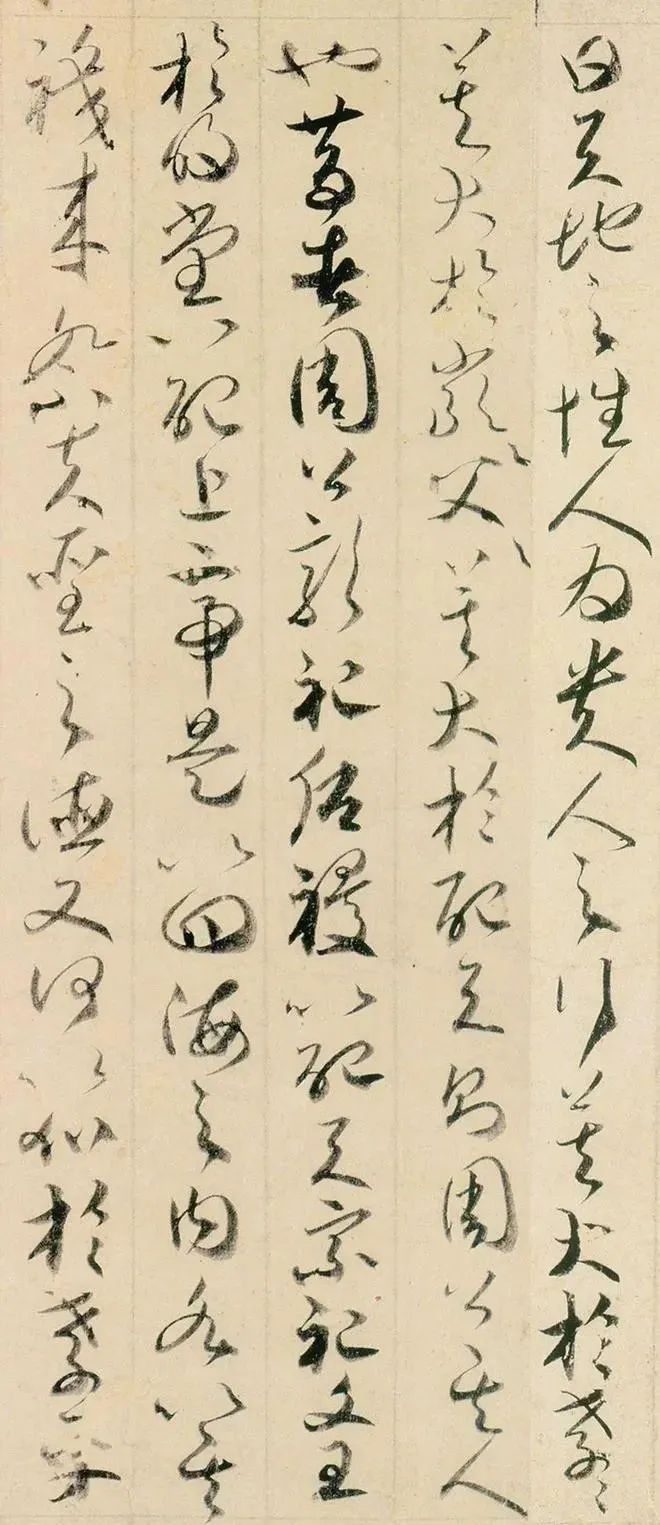 曰天地之性人為貴人之行莫大於孝〻
莫大於嚴〻父〻莫大於配天則周公其人
也昔者周公郊祀后稷以配天宗祀文王
於明堂以配上帝是以四海之內各以其
職來祭夫聖之德又何以加於孝乎